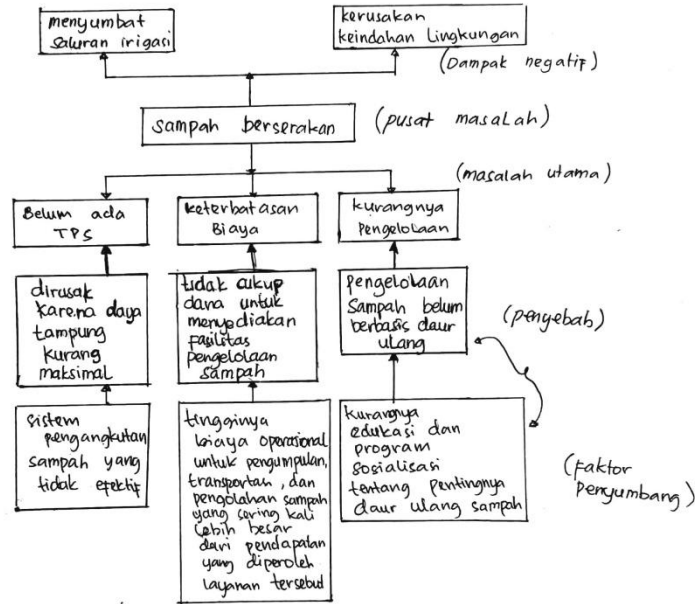 menyumbat
saluran irigasi
kerusakan
keindahan Lingkungan
(Dampak negatif)
Sampah berserakan
(pusat masalah)
(masalah utama)
Belum ada
TPS
keterbatasan
Biaya
kurangnya
Pengelolaan
dirusak
karena daya
tampung
kurang
maksimal
tidak cukup
dana untuk
menyediakan
fasilitas
pengelolaan
sampah
pengelolaan
Sampah belum
berbasis daur
ulang
(penyebab)
sistem
pengangkutan
sampah yang
tidak efektif
tingginya
biaya operasional
untuk pengumpulan,
transportasi, dan
pengolahan sampah
yang sering kali
lebih besar
dari pendapatan
yang diperoleh
layanan tersebut
kurangnya
edukasi dan
program
sosialisasi
tentang pentingnya
daur ulang sampah
(Faktor
Penyumbang)